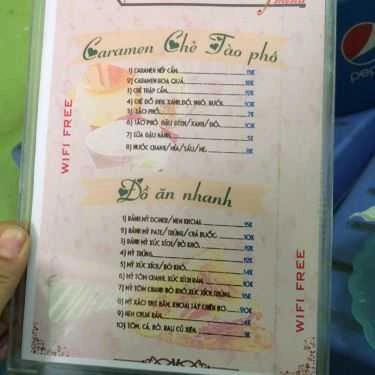 menu
Caramen Chè Tào phớ
1) CARAMEN NẾP CẨM 15K
2) CARAMEN HOA QUẢ
3) CHÈ THẬP CẨM
4) CHÈ ĐỖ ĐEN, XANH, ĐỎ, NGÔ, BƯỞI 10K
5) TÀO PHỚ 7K
6) TÀO PHỚ ĐẬU ĐEN/XANH/ĐỎ 10K
7) SỮA ĐẬU NÀNH 5K
8) NƯỚC CHANH/MÍA/SẤU/ME 8K
Đồ ăn nhanh
1) BÁNH MỲ DONER/NEM KHOAI 15K
2) BÁNH MỲ PATE/TRỨNG/CHẢ RUỐC 10K
3) BÁNH MỲ XÚC XÍCH/BÒ KHÔ 12K
4) MỲ TRỨNG 12K
5) MỲ XÚC XÍCH/BÒ KHÔ 14K
6) MỲ TÔM CHANH XÚC XÍCH RÁN
7) MỲ TÔM CHANH BÒ KHÔ, XÚC XÍCH, TRỨNG 15K
8) MỲ XÀO THỊT BĂM, KHOAI TÂY CHIÊN BƠ 20K
9) NEM CHUA RÁN
10) TÔM, CÁ, BÒ, RAU CỦ XIÊN
WIFI FREE
WIFI FREE
pepsi